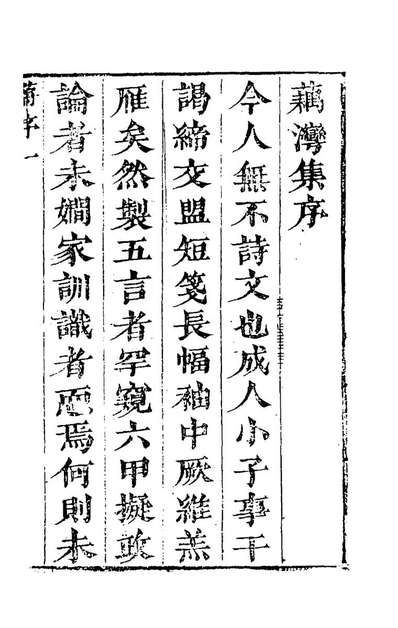 藕灣集序
今人無不詩文也成人小子事干
謁締交盟短箋長幅袖中厥維羔
雁矣然製五言者罕窺六甲擬政
論者未嫺家訓識者恧焉何則未
序一